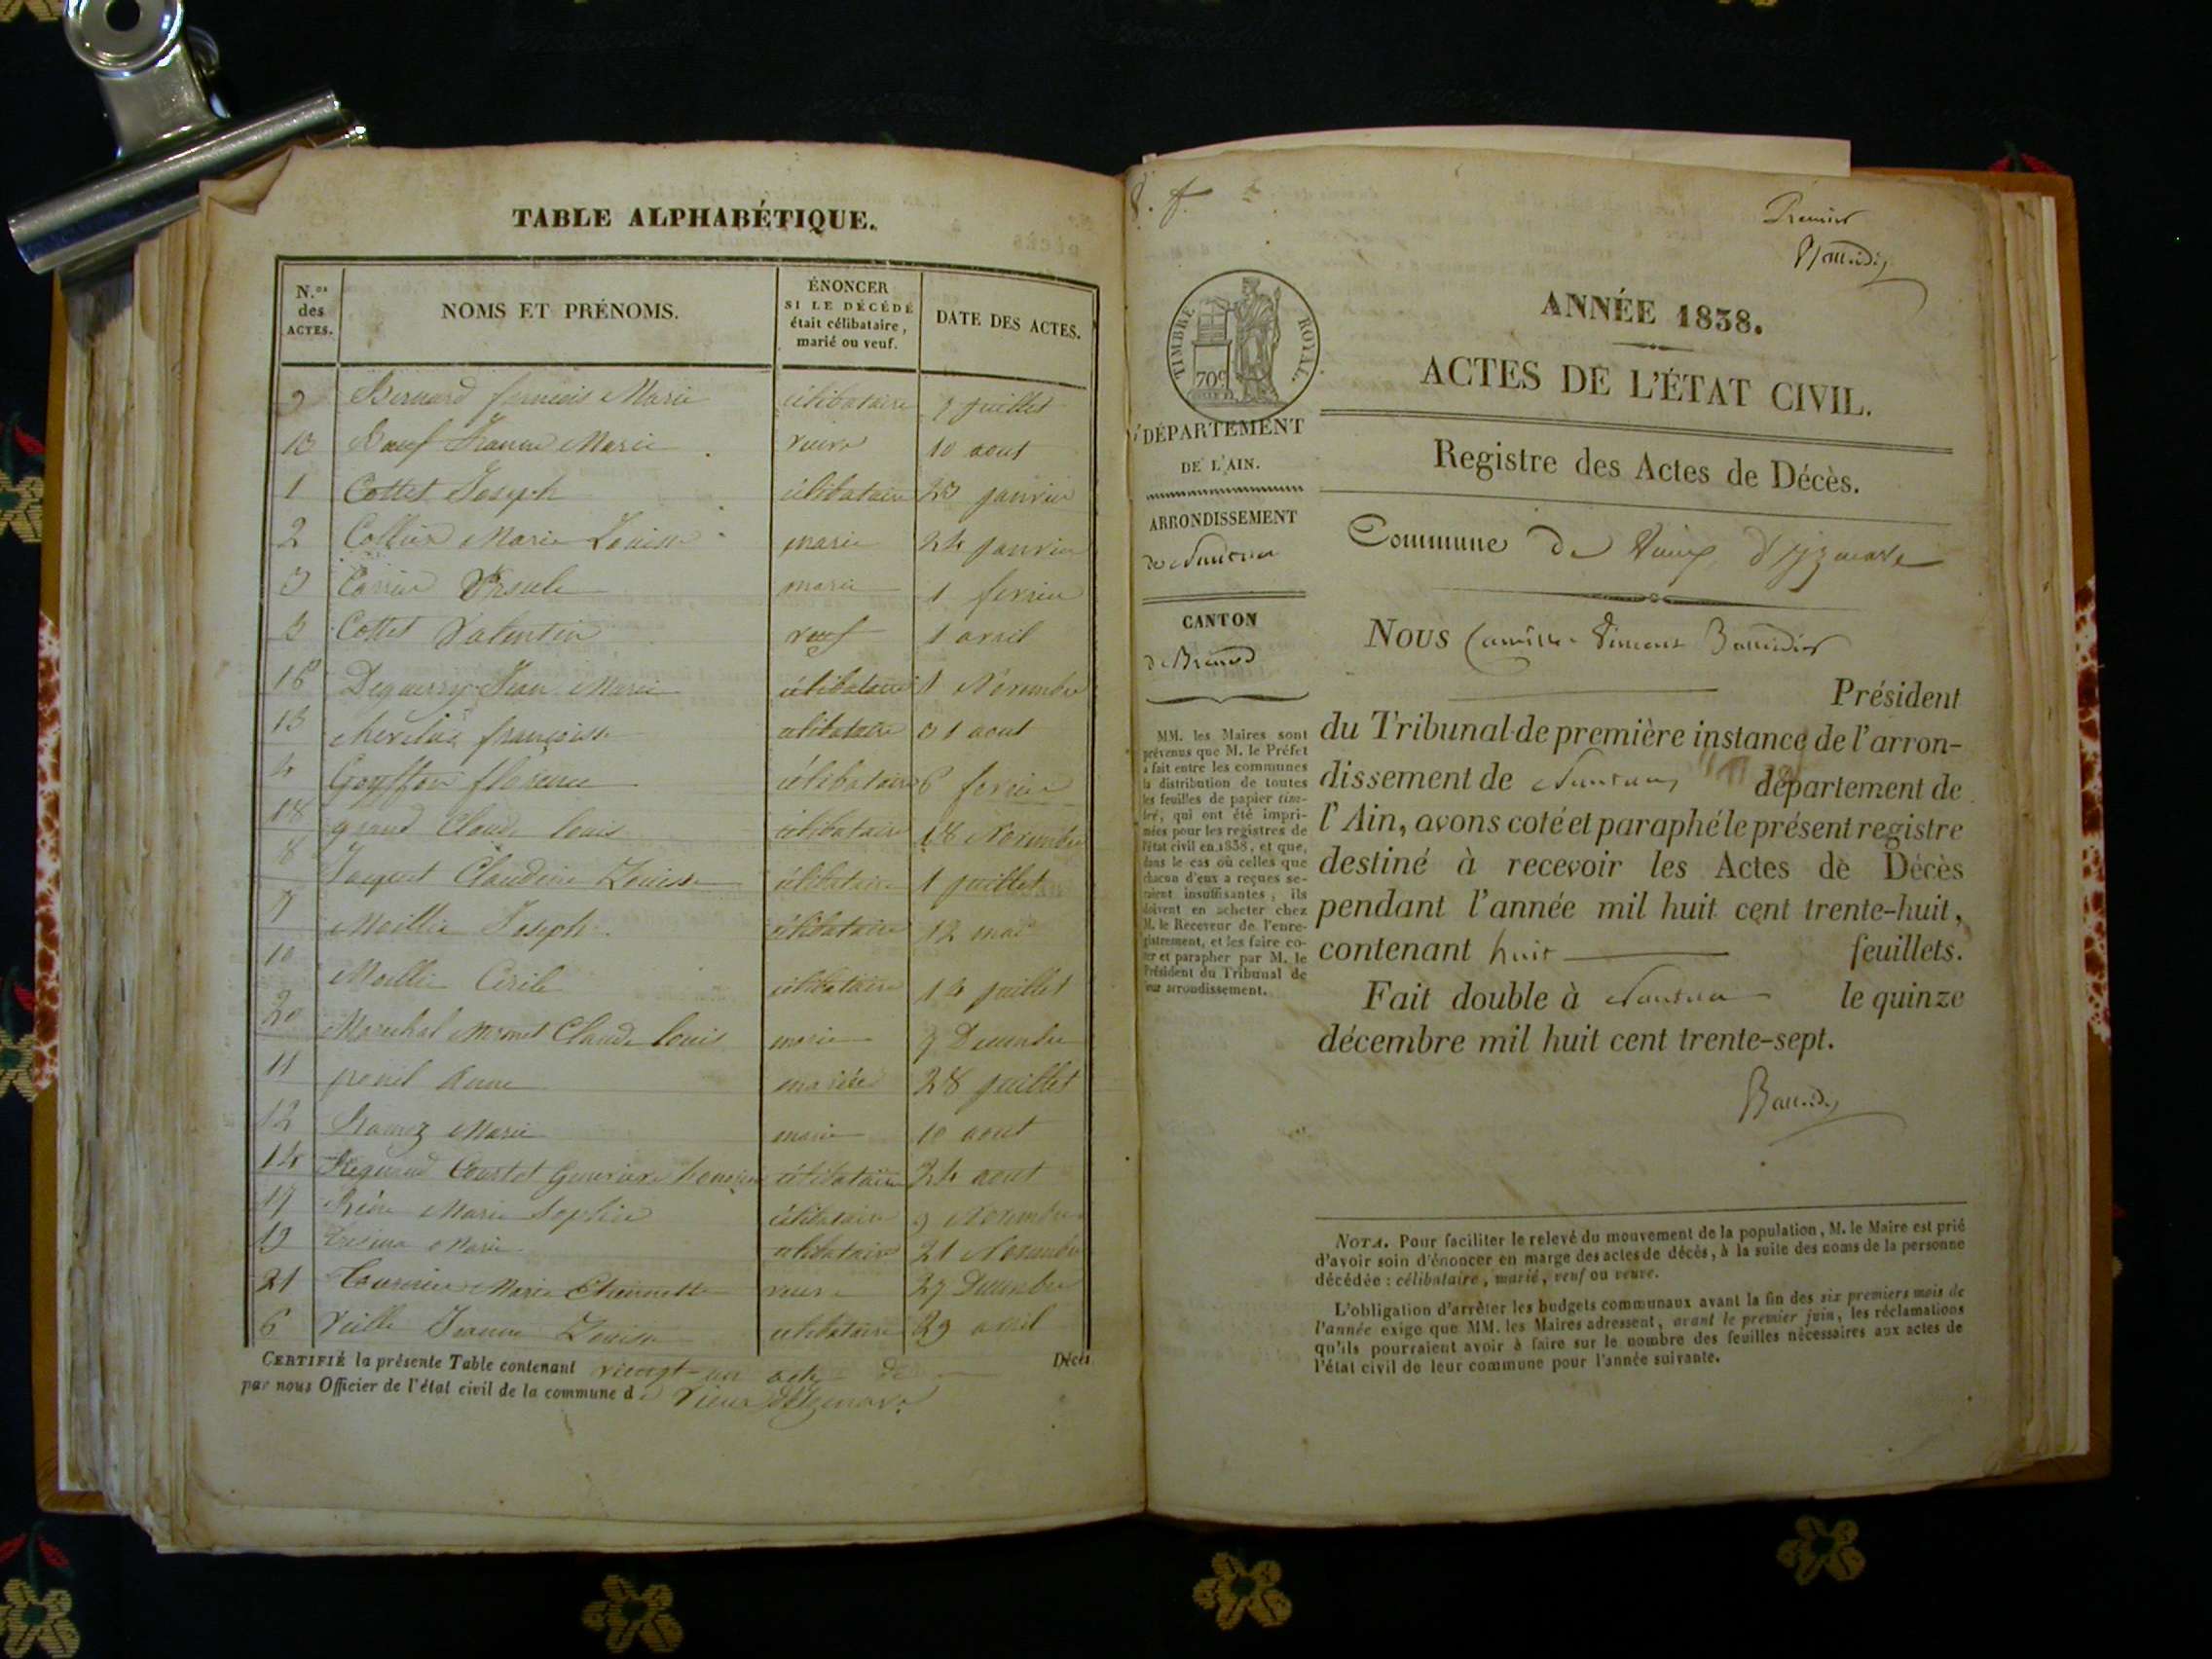 TABLE ALPHABÉTIQUE.
N.os des ACTES.
NOMS ET PRÉNOMS.
ÉNONCER
SI LE DÉCÉDÉ
était célibataire,
marié ou veuf.
DATE DES ACTES.
9 Bernard francois Marie célibataire 9 juillet
Marie 10 aout
1 Cottet Joseph célibataire janvier
2 Marie Louise marie 24 janvier
Ursule marie 1 fevrier
Cottet Valentin veuf 1 avril
16 Jean Marie célibataire 1 Novembre
13 françoise célibataire aout
4 Goyffon florence célibataire 6 fevrier
18 grand Claude louis célibataire 18 Novembre
8 Claudine Louise célibataire 1 juillet
7 Moillie Joseph célibataire 12 mai
10 Moillie Cecile célibataire 14 juillet
20 Marechal Claude louis marie Decembre
11 Anne mariée 28 juillet
12 Ramez Marie marie 10 aout
14 célibataire 24 aout
17 Marie Sophie célibataire 9 Novembre
19 Marie célibataire 21 Novembre
21 Tournier Marie Etiennette veuve 27 Decembre
6 Jeanne Louise célibataire 29 avril
CERTIFIÉ la présente Table contenant vingt-un acte de Décès
par nous Officier de l'état civil de la commune de Vieux d'Izenave
Premier
ANNÉE 1838.
ACTES DE L'ÉTAT CIVIL.
TIMBRE ROYAL.
70c
DÉPARTEMENT
DE L'AIN.
ARRONDISSEMENT
de Nantua
CANTON
de Brenod
MM. les Maires sont
prévenus que M. le Préfet
a fait entre les communes
la distribution de toutes
les feuilles de papier tim-
bré, qui ont été impri-
mées pour les registres de
l'état civil en 1838, et que,
dans le cas où celles que
chacun d'eux a reçues se-
raient insuffisantes, ils
doivent en acheter chez
M. le Receveur de l'enre-
gistrement, et les faire co-
ter et parapher par M. le
Président du Tribunal de
leur arrondissement.
Registre des Actes de Décès.
Commune de Vieux d'Izenave
Nous Camille Vincent
Président
du Tribunal de première instance de l'arron-
dissement de Nantua département de
l'Ain, avons coté et paraphé le présent registre
destiné à recevoir les Actes de Décès
pendant l'année mil huit cent trente-huit,
contenant huit feuillets.
Fait double à Nantua le quinze
décembre mil huit cent trente-sept.
NOTA. Pour faciliter le relevé du mouvement de la population, M. le Maire est prié
d'avoir soin d'énoncer en marge des actes de décès, à la suite des noms de la personne
décédée : célibataire, marié, veuf ou veuve.
L'obligation d'arrêter les budgets communaux avant la fin des six premiers mois de
l'année exige que MM. les Maires adressent, avant le premier juin, les réclamations
qu'ils pourraient avoir à faire sur le nombre des feuilles nécessaires aux actes de
l'état civil de leur commune pour l'année suivante.